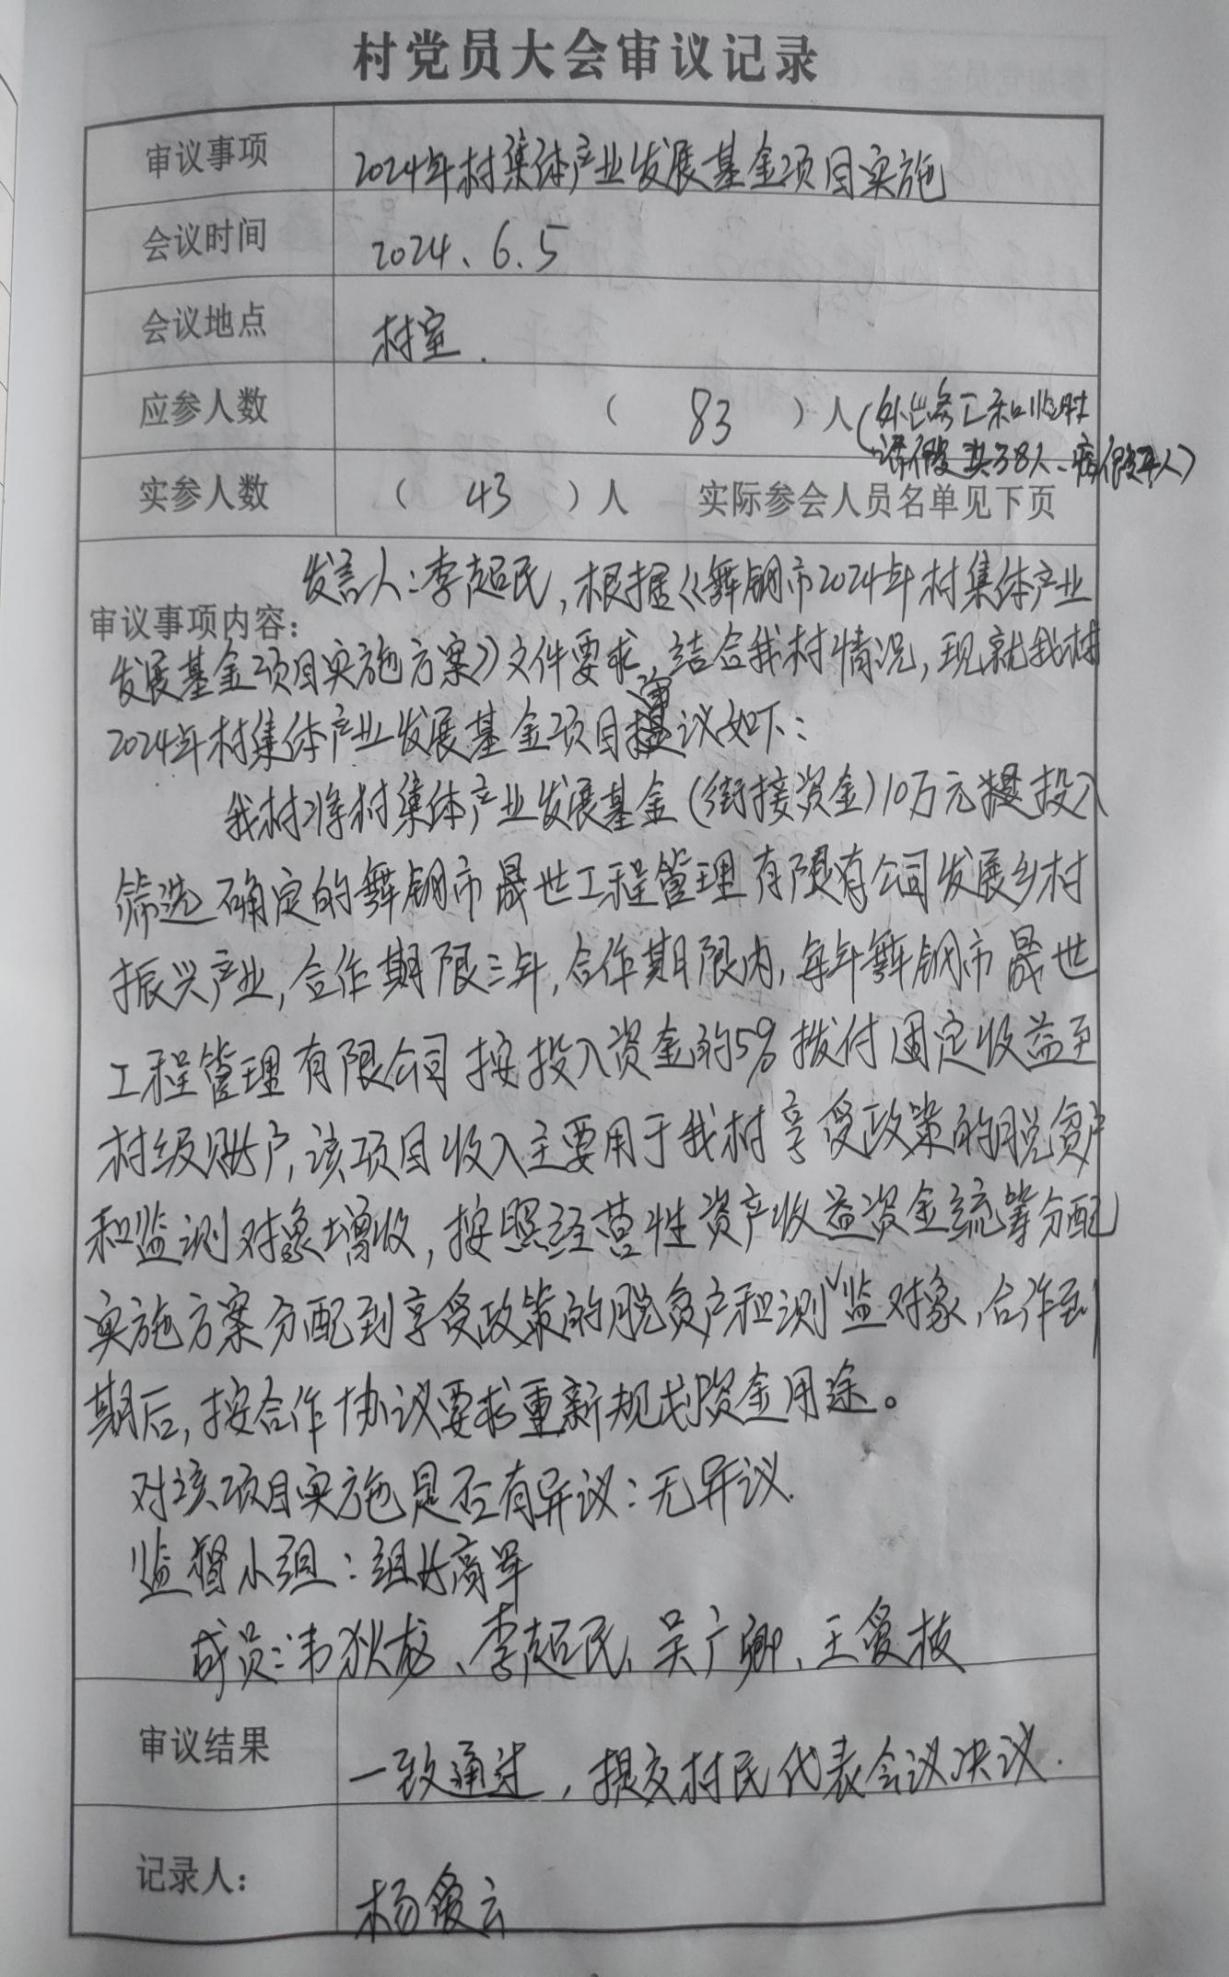 村党员大会审议记录
审议事项 2024年村集体产业发展基金项目实施
会议时间 2024、6.5
会议地点 村室.
应参人数 （ 83 ）人(外出务工和临时
请假共38人、病假2人)
实参人数 （ 43 ）人 实际参会人员名单见下页
发言人:李超民,根据《舞钢市2024年村集体产业
审议事项内容:
发展基金项目实施方案》文件要求,结合我村情况,现就我村
2024年村集体产业发展基金项目审议如下:
我村将村集体产业发展基金(衔接资金)10万元投入
筛选确定的舞钢市晟世工程管理有限公司发展乡村
振兴产业,合作期限三年,合作期限内,每年舞钢市晟世
工程管理有限公司按投入资金的5%拨付固定收益至
村级账户,该项目收入主要用于我村享受政策的脱贫户
和监测对象增收,按照经营性资产收益资金统筹分配
实施方案分配到享受政策的脱贫户和测监对象,合作到
期后,按合作协议要求重新规划资金用途。
对该项目实施是否有异议:无异议.
监督小组:组长高军
成员:韦狄龙、李超民、吴广卿、王爱枝
审议结果 一致通过,提交村民代表会议决议.
记录人: 杨爱云